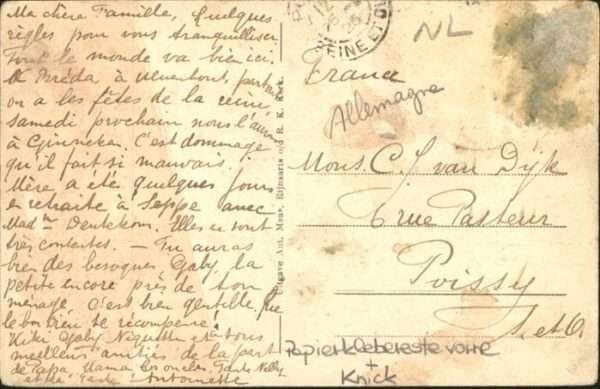 Ma chère Famille, Quelques
règles pour vous tranquilliser
Tout le monde va bien ici.
A Bréda à Ulvenhout, partout
on a les fêtes de la reine,
samedi prochain nous l'aurons
à Ginneken. C'est dommage
qu'il fait si mauvais.
Mère a été quelques jours
en retraite à Seppe avec
Mad. Elles en sont
très contentes. — Tu auras
bien des besognes, Gaby, la
petite encore près de son
ménage. C'est bien gentille, que
le bon Dieu te récompense!
Kiki Gaby et tous
meilleurs amitiés de la part
de Papa, Mama les oncles Tante Nelly
Tante Antoinette
Uitgave Ant. Mous, Rijnaarts
SEINE ET O
NL
France
Allemagne
Mons. C. J van Dijk
6 rue Pasteur
Poissy
S. et O.
Papierklebereste vorne
+
Knick